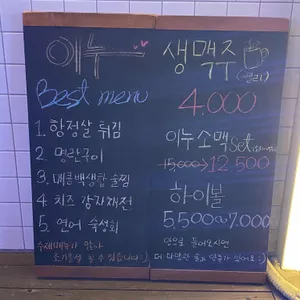 이누
Best menu
1. 항정살 튀김
2. 명란구이
3. 매콤백생합술찜
4. 치즈 감자채전
5. 연어 숙성회
수제메뉴가 많아
조기품절 될 수 있습니다 :)
생맥주
4.000
이누소맥 set
15,000→12.500
하이볼
5,500~7.000
안으로 들어오시면
더 다양한 술과 안주가 있어요 :)